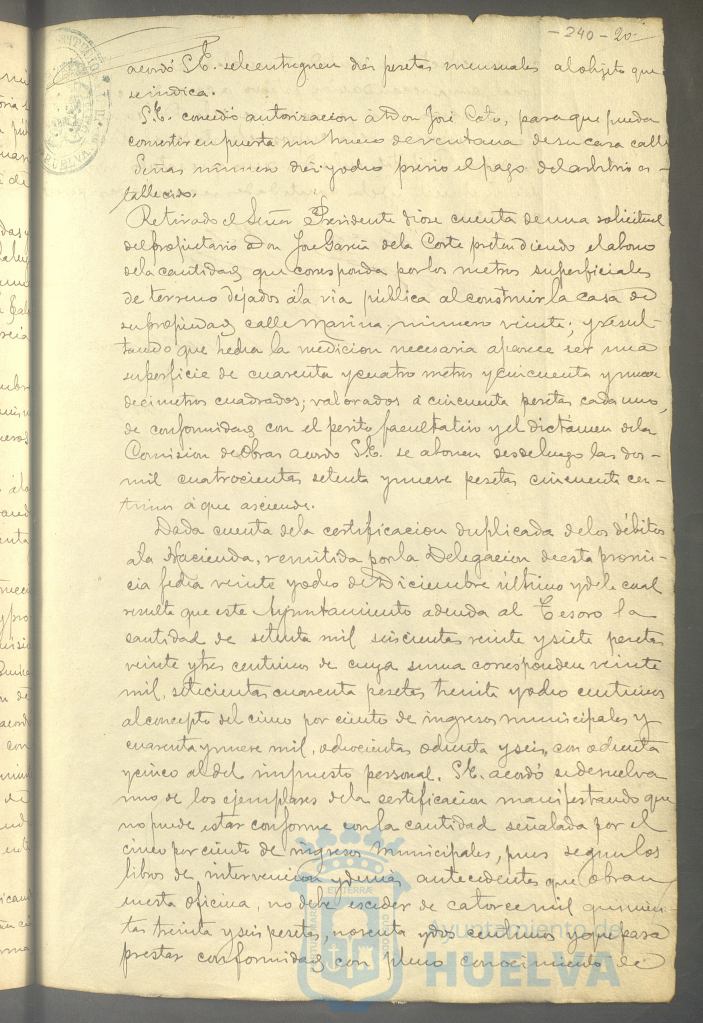 - 240 - 20 -
acordó S.E. se le entreguen diez pesetas mensuales al objeto que
se indica.
S.E. concedió autorizacion á Don José Coto, para que pueda
convertir en puerta un hueco de ventana de su casa calle
Señas número diez y ocho previo el pago del arbitrio es-
tablecido.
Retirado el Señor Presidente diose cuenta de una solicitud
del propietario Don José García de la Corte pretendiendo el abono
de la cantidad que corresponda por los metros superficiales
de terreno dejados á la via pública al construir la casa de
su propiedad calle Marina, número veinte; y resul-
tando que hecha la medicion necesaria aparece ser una
superficie de cuarenta y cuatro metros y cincuenta y nueve
decimetros cuadrados; valorados á cincuenta pesetas cada uno,
de conformidad con el perito facultativo y el dictamen de la
Comision de Obras acordó S.E. se abonen desde luego las dos-
mil cuatrocientas setenta y nueve pesetas cincuenta cen-
timos á que asciende.
Dada cuenta de la certificacion duplicada de los débitos
á la Hacienda, remitida por la Delegacion de esta provin-
cia fecha veinte y ocho de Diciembre último y de la cual
resulta que este Ayuntamiento adeuda al Tesoro la
cantidad de setenta mil seiscientas veinte y siete pesetas
veinte y tres centimos de cuya suma corresponden veinte
mil, setecientas cuarenta pesetas treinta y ocho centimos
al concepto del cinco por ciento de ingresos municipales y
cuarenta y nueve mil, ochocientas ochenta y seis, con ochenta
y cinco al del impuesto personal, S.E. acordó se devuelva
uno de los ejemplares de la certificacion manifestando que
no puede estar conforme con la cantidad señalada por el
cinco por ciento de ingresos municipales, pues segun los
libros de intervencion y demás antecedentes que obran
en esta oficina, no debe exceder de catorce mil quinien-
tas treinta y seis pesetas, noventa y dos centimos y que para
prestar conformidad con pleno conocimiento de
Ayuntamiento de
HUELVA